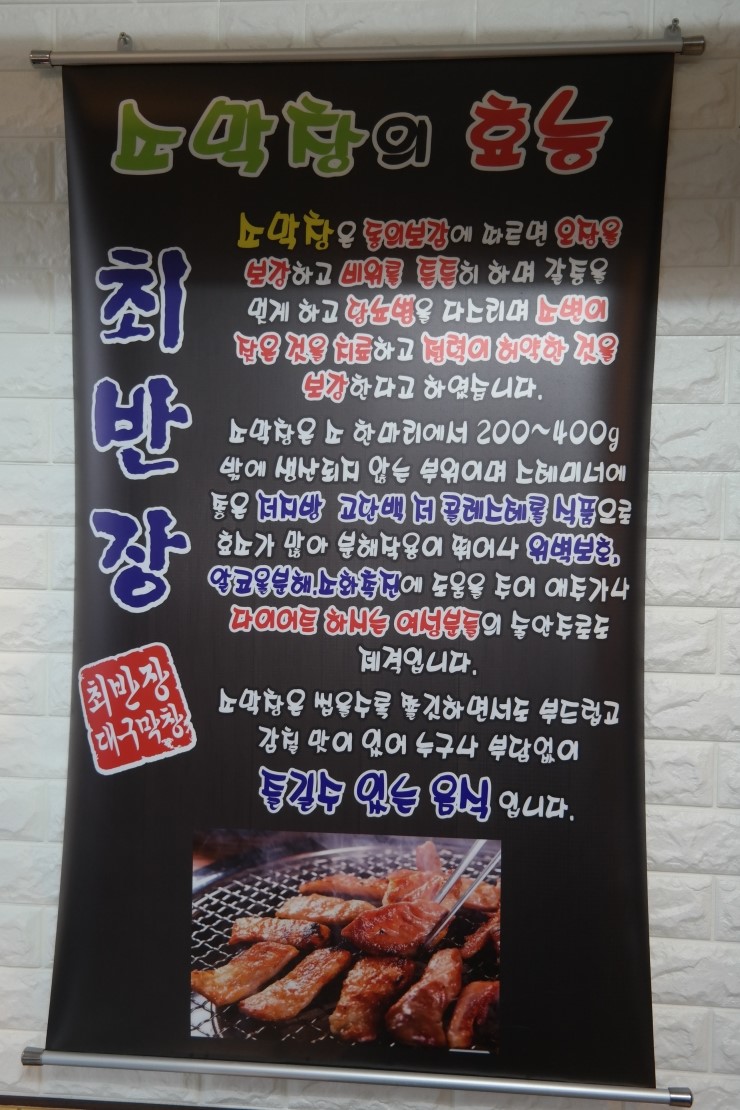 소막창의 효능
소막창은 동의보감에 따르면 오담을
보강하고 비위를 튼튼히 하며 갈등을
멎게 하고 당뇨병을 다스리며 소변이
잦은 것을 치료하고 정력이 허약한 것을
보강한다고 하였습니다.
소막창은 소 한마리에서 200~400g
밖에 생산되지 않는 부위이며 스테미너에
좋은 저지방 고단백 저 콜레스테롤 식품으로
효소가 많아 분해작용이 뛰어나 위벽보호,
알코올분해.소화촉진에 도움을 주어 애주가나
다이어트 하시는 여성분들의 술안주로도
제격입니다.
소막창은 씹을수록 쫄깃하면서도 부드럽고
감칠 맛이 있어 누구나 부담없이
즐길수 있는 음식 입니다.
최반장
최반장
대구막창